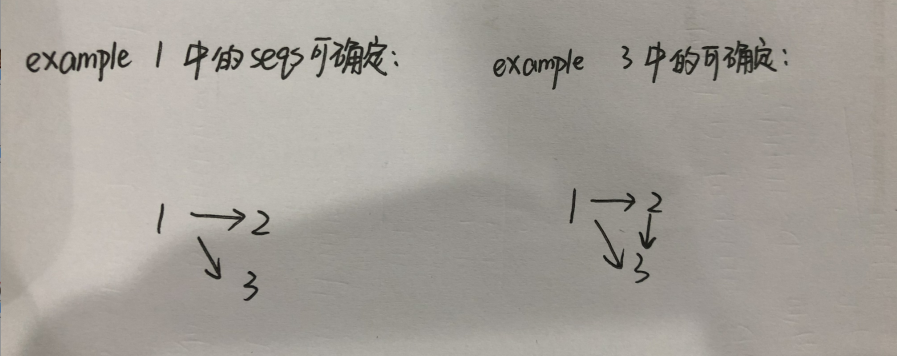 example 1 中的 seqs 可确定:
example 3 中的可确定:
1 → 2
3
1 → 2
3